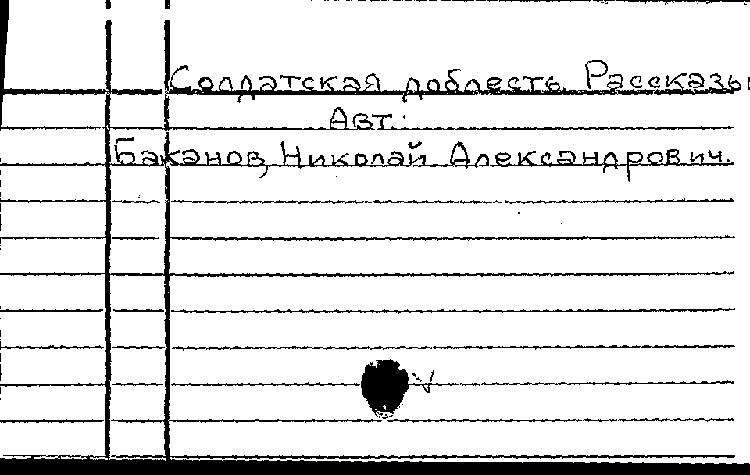 Солдатская доблесть. Рассказы
Авт.:
Баканов, Николай Александрович.